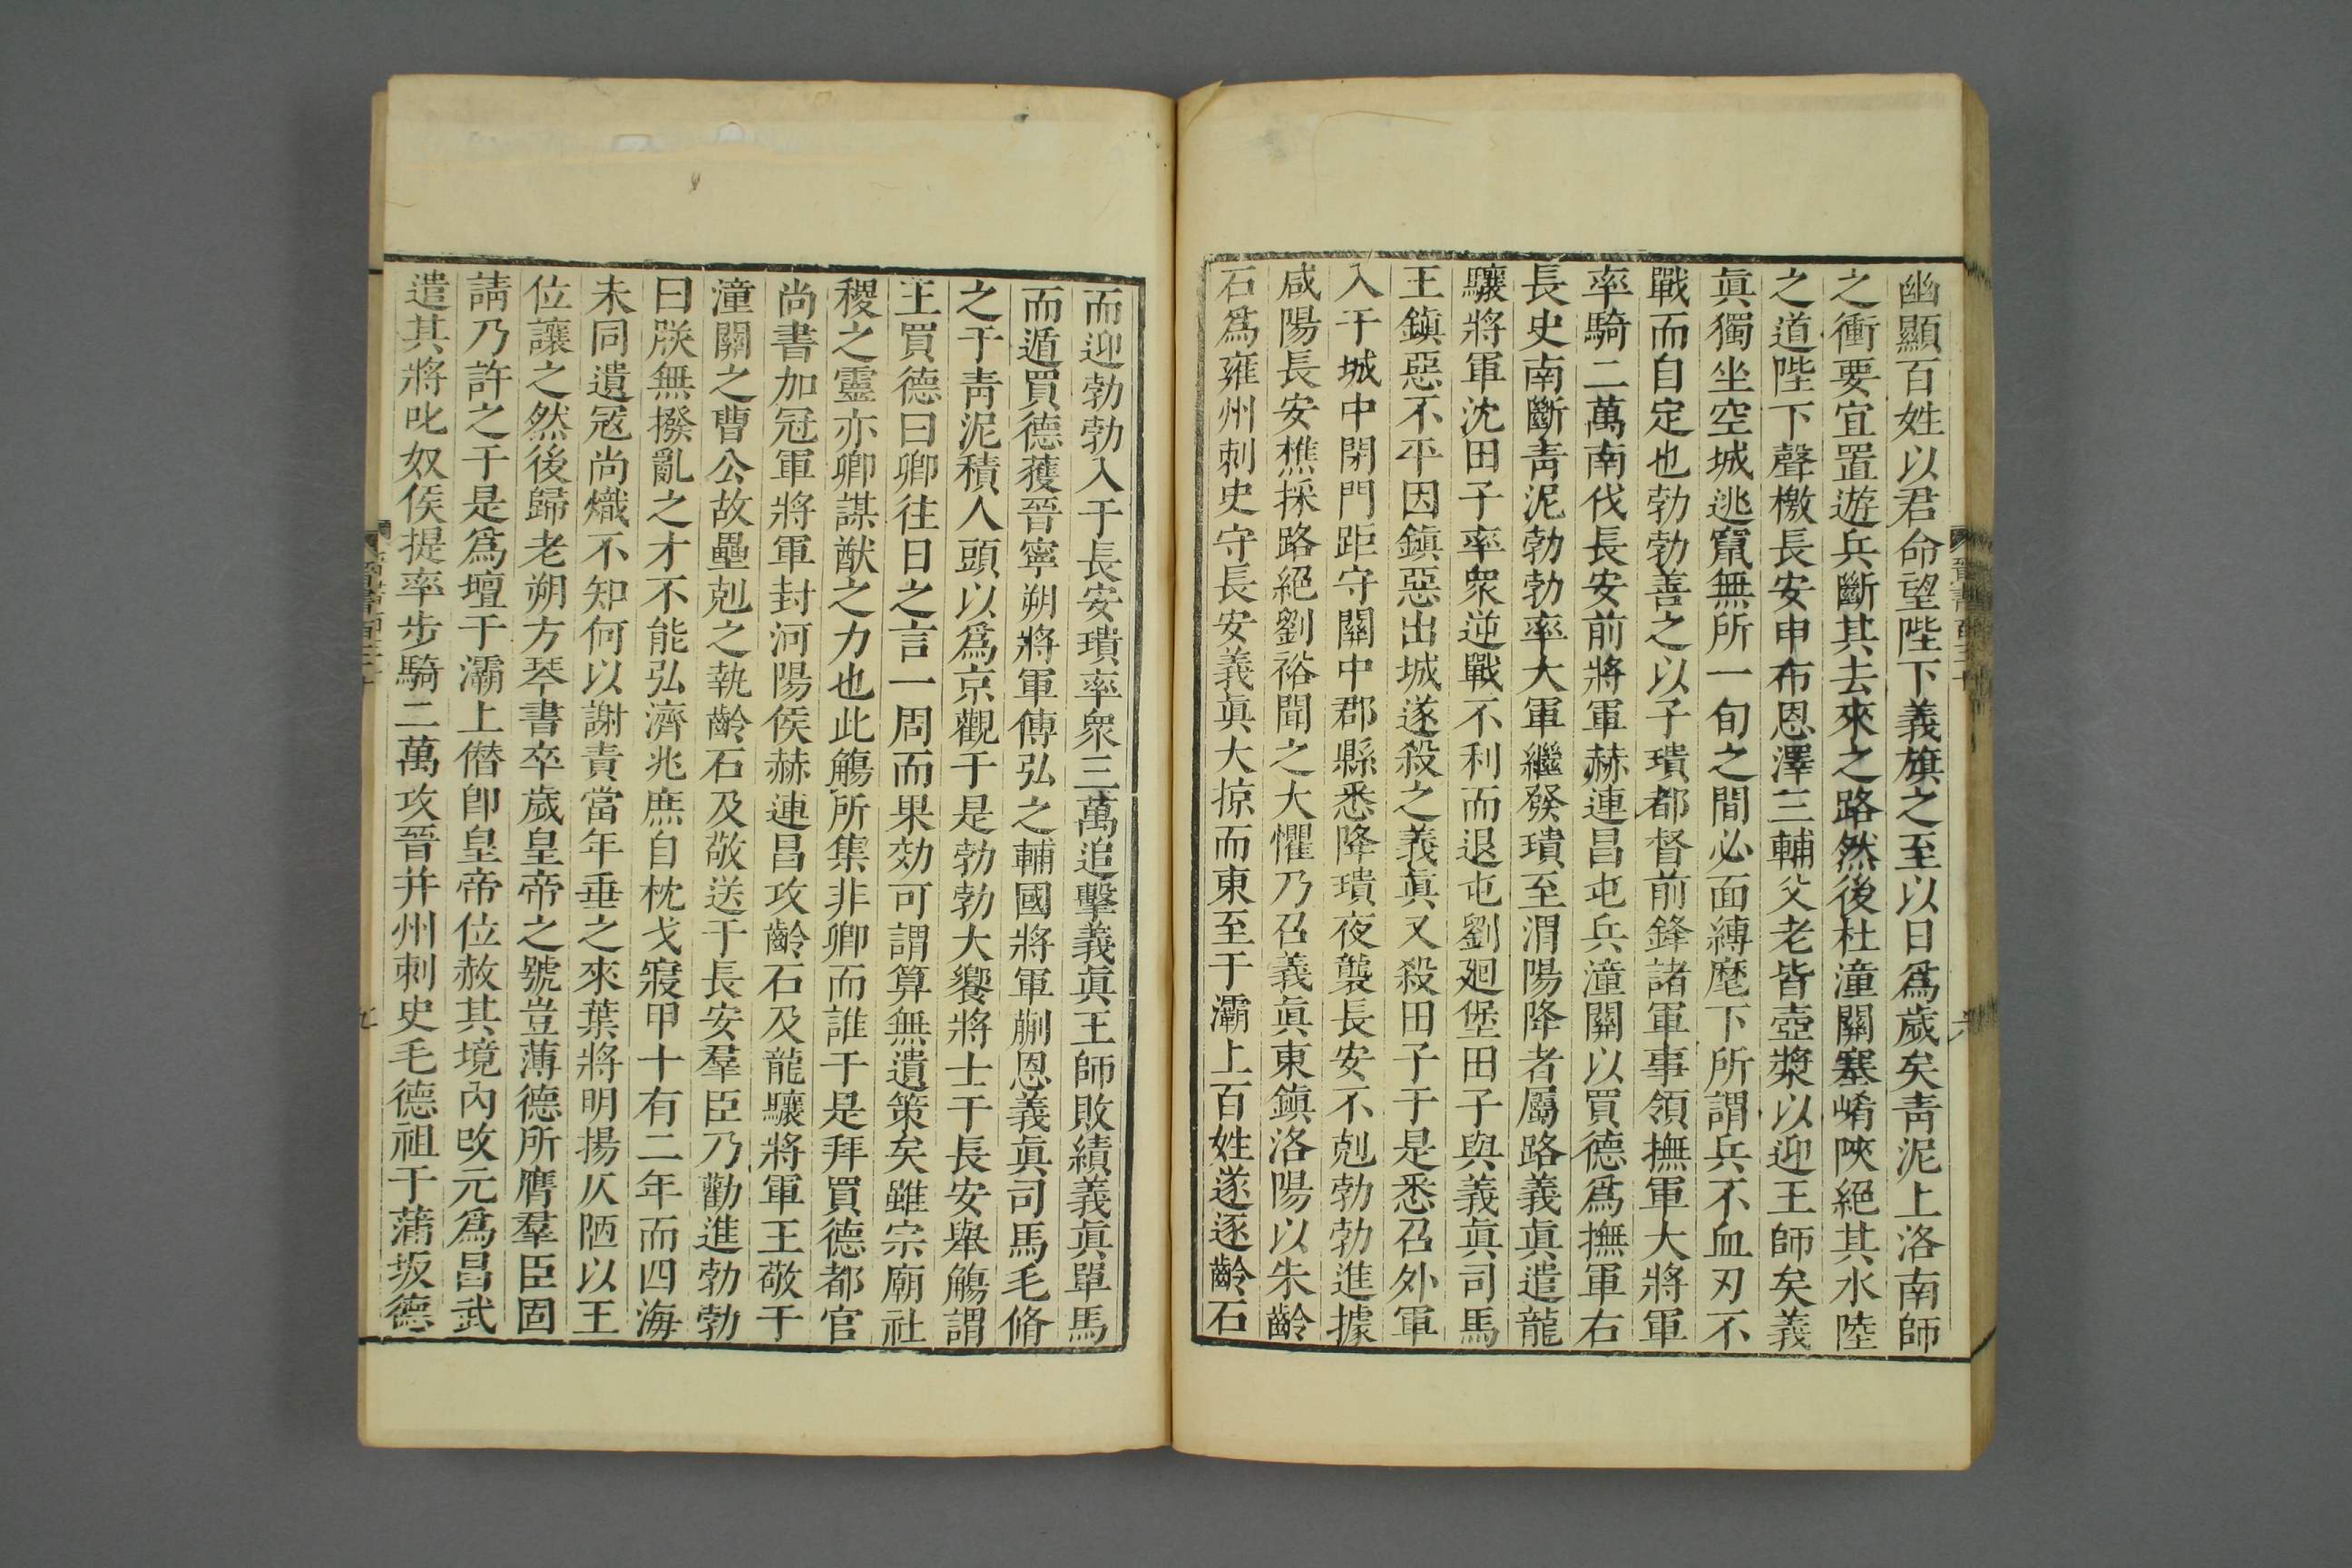 幽顯百姓以君命望陛下義旗之至以日爲歲矣靑泥上洛南師
之衝要宜置遊兵斷其去來之路然後杜潼關塞崤陝絕其水陸
之道陛下聲檄長安申布恩澤三輔父老皆壺漿以迎王師矣義
眞獨坐空城逃竄無所一旬之間必面縛麾下所謂兵不血刃不
戰而自定也勃勃善之以子璝都督前鋒諸軍事領撫軍大將軍
率騎二萬南伐長安前將軍赫連昌屯兵潼關以買德爲撫軍右
長史南斷靑泥勃勃率大軍繼發璝至渭陽降者屬路義眞遣龍
驤將軍沈田子率衆逆戰不利而退屯劉廻堡田子與義眞司馬
王鎭惡不平因鎭惡出城遂殺之義眞又殺田子于是悉召外軍
入于城中閉門距守關中郡縣悉降璝夜襲長安不剋勃勃進據
咸陽長安樵採路絕劉裕聞之大懼乃召義眞東鎭洛陽以朱齡
石爲雍州刺史守長安義眞大掠而東至于灞上百姓遂逐齡石
而迎勃勃入于長安璝率衆三萬追擊義眞王師敗績義眞單馬
而遁買德獲晉寧朔將軍傅弘之輔國將軍蒯恩義眞司馬毛脩
之于靑泥積人頭以爲京觀于是勃勃大饗將士于長安舉觴謂
王買德曰卿往日之言一周而果効可謂算無遺策矣雖宗廟社
稷之靈亦卿謀猷之力也此觴所集非卿而誰于是拜買德都官
尚書加冠軍將軍封河陽侯赫連昌攻齡石及龍驤將軍王敬于
潼關之曹公故壘剋之執齡石及敬送于長安羣臣乃勸進勃勃
曰朕無撥亂之才不能弘濟兆庶自枕戈寢甲十有二年而四海
未同遺寇尚熾不知何以謝責當年垂之來葉將明揚仄陋以王
位讓之然後歸老朔方琴書卒歲皇帝之號豈薄德所膺羣臣固
請乃許之于是爲壇于灞上僭卽皇帝位赦其境內改元爲昌武
遣其將叱奴侯提率步騎二萬攻晉并州刺史毛德祖于蒲坂德
九